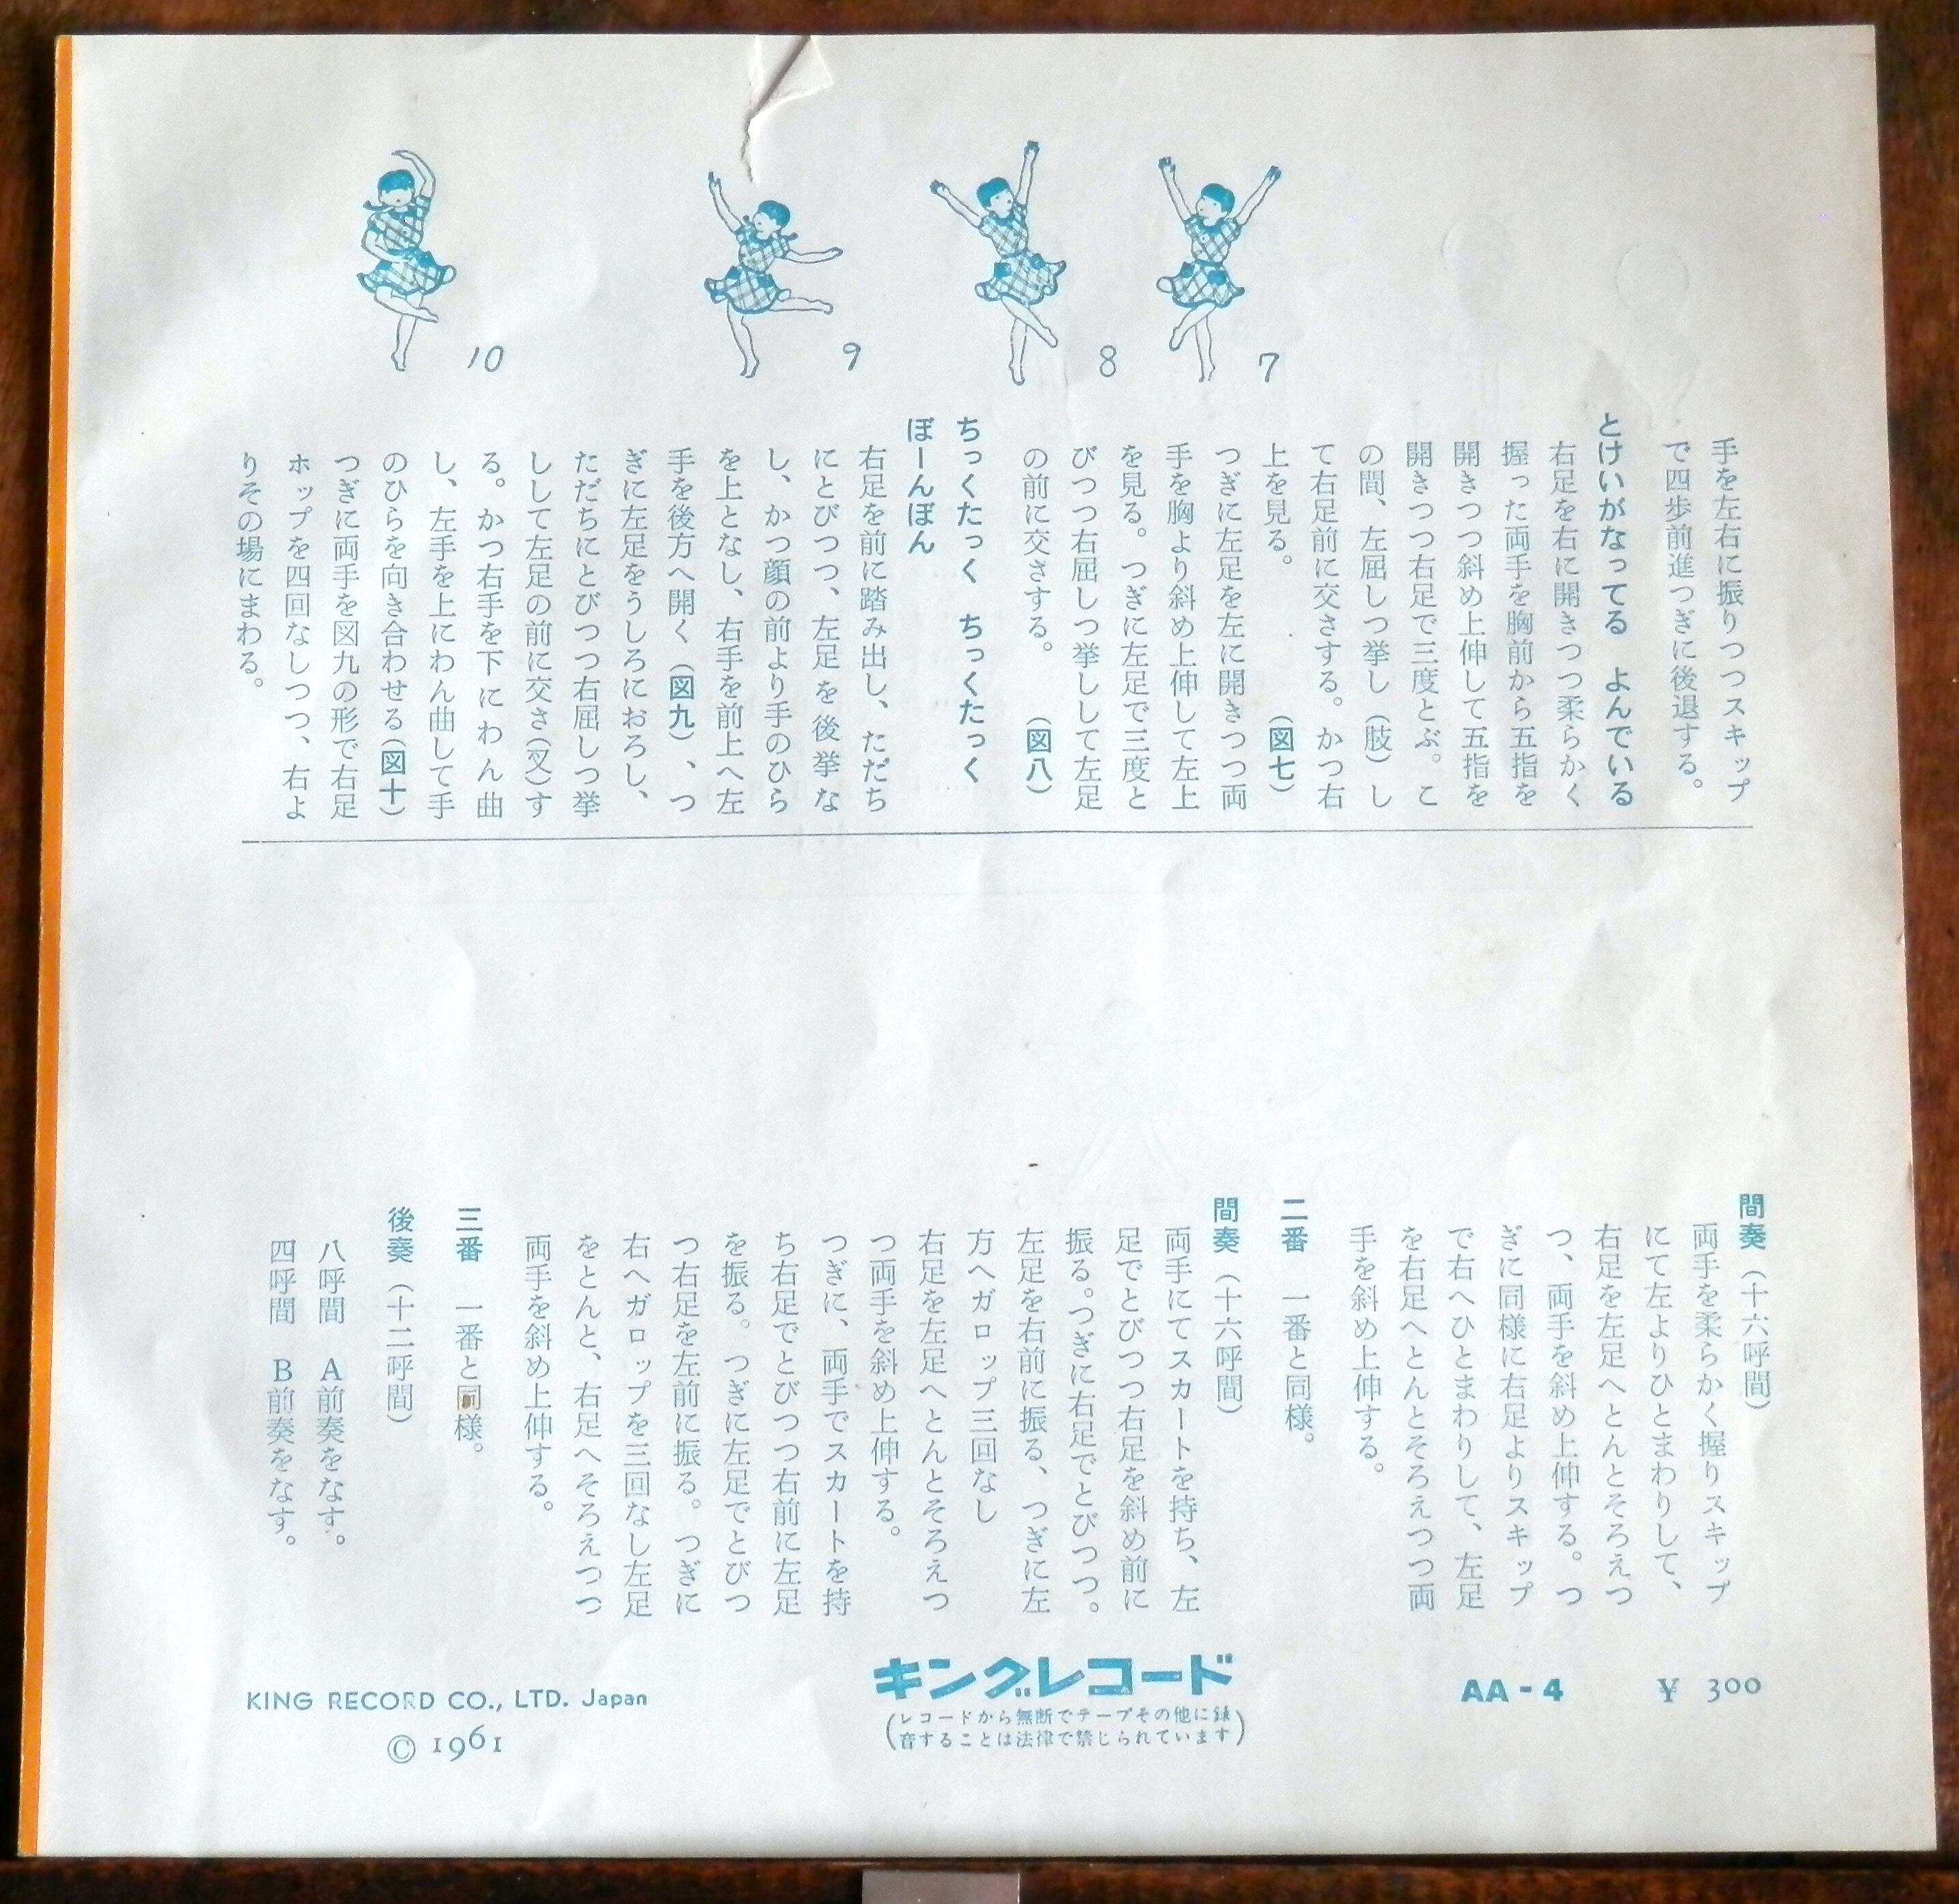 10
9
8
7
手を左右に振りつつスキップ
で四歩前進つぎに後退する。
とけいがなってる　よんでいる
右足を右に開きつつ柔らかく
握った両手を胸前から五指を
開きつつ斜め上伸して五指を
開きつつ右足で三度とぶ。こ
の間、左屈しつ挙し（肢）し
て右足前に交さする。かつ右
上を見る。　（図七）
つぎに左足を左に開きつつ両
手を胸より斜め上伸して左上
を見る。つぎに左足で三度と
びつつ右屈しつ挙しして左足
の前に交さする。　（図八）
ちっくたっく　ちっくたっく
ぼーんぼん
右足を前に踏み出し、ただち
にとびつつ、左足を後挙な
し、かつ顔の前より手のひら
を上となし、右手を前上へ左
手を後方へ開く（図九）、つ
ぎに左足をうしろにおろし、
ただちにとびつつ右屈しつ挙
しして左足の前に交さ（叉）す
る。かつ右手を下にわん曲
し、左手を上にわん曲して手
のひらを向き合わせる（図十）
つぎに両手を図九の形で右足
ホップを四回なしつつ、右よ
りその場にまわる。
間奏（十六呼間）
両手を柔らかく握りスキップ
にて左よりひとまわりして、
右足を左足へとんとそろえつ
つ、両手を斜め上伸する。つ
ぎに同様に右足よりスキップ
で右へひとまわりして、左足
を右足へとんとそろえつつ両
手を斜め上伸する。
二番　一番と同様。
間奏（十六呼間）
両手にてスカートを持ち、左
足でとびつつ右足を斜め前に
振る。つぎに右足でとびつつ。
左足を右前に振る、つぎに左
方へガロップ三回なし
右足を左足へとんとそろえつ
つ両手を斜め上伸する。
つぎに、両手でスカートを持
ち右足でとびつつ右前に左足
を振る。つぎに左足でとびつ
つ右足を左前に振る。つぎに
右へガロップを三回なし左足
をとんと、右足へそろえつつ
両手を斜め上伸する。
三番　一番と同様。
後奏（十二呼間）
八呼間　A前奏をなす。
四呼間　B前奏をなす。
KING RECORD CO., LTD. Japan
© 1961
キングレコード
（レコードから無断でテープその他に録
音することは法律で禁じられています）
AA-4
¥ 300